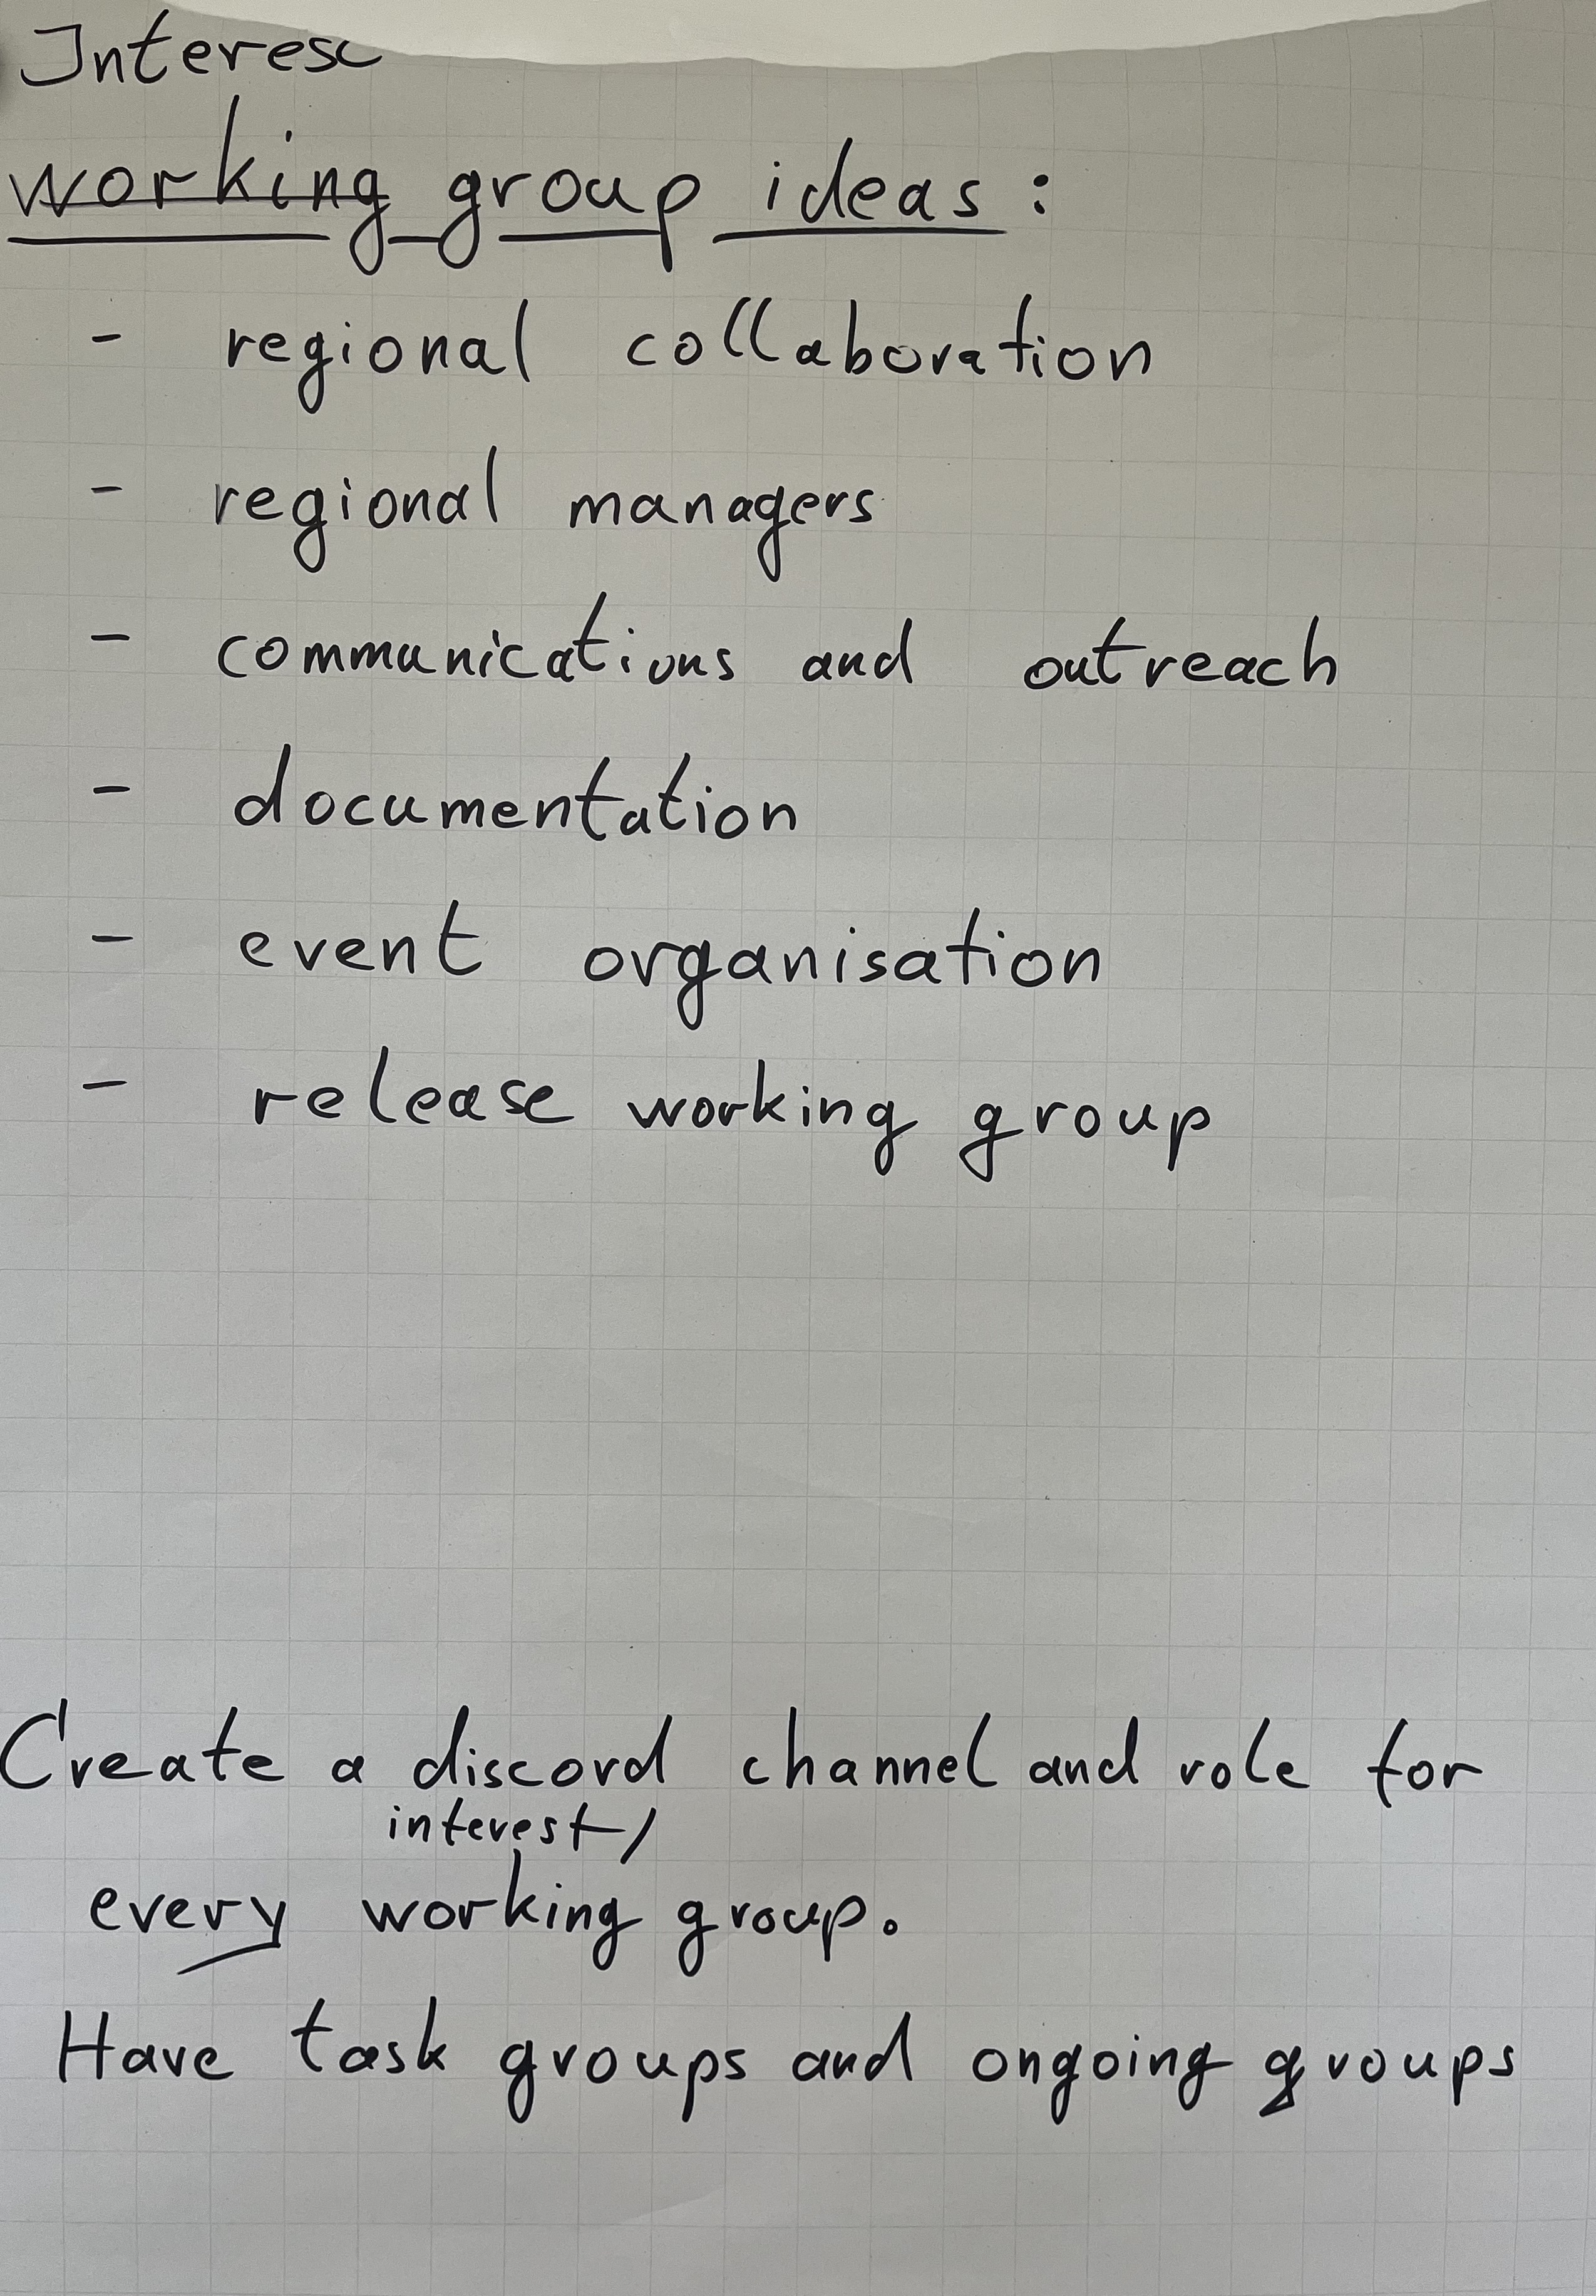 Interes
working group ideas:
- regional collaboration
- regional managers
- communications and outreach
- documentation
- event organisation
- release working group
Create a discord channel and role for
interest/
every working group.
Have task groups and ongoing groups